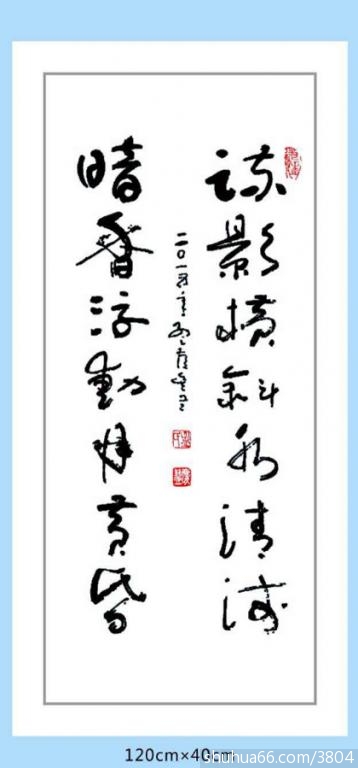 疏影橫斜水清淺
暗香浮動月黃昏
二〇一
120cm×40cm
shuhua66.com/3804